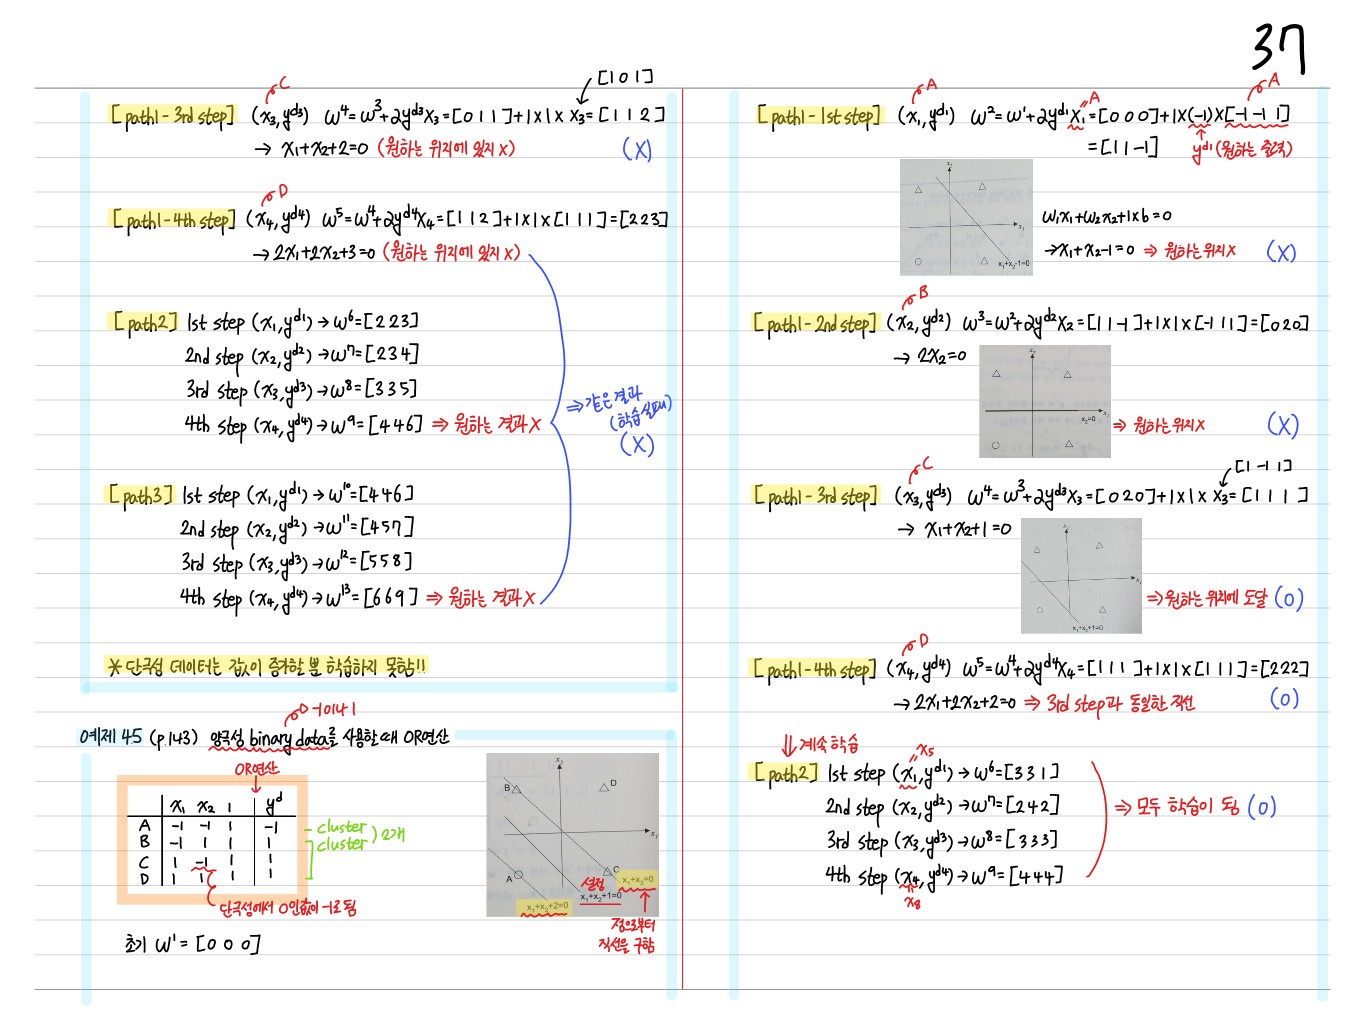 37
[101]
C
[path1-3rd step] (x3, yd3) w4=w3+2yd3x3=[011]+1×1×x3=[112]
→ x1+x2+2=0 (원하는 위치에 있지 X) (X)
D
[path1-4th step] (x4, yd4) w5=w4+2yd4x4=[112]+1×1×[111]=[223]
→ 2x1+2x2+3=0 (원하는 위치에 있지 X)
[path2] 1st step (x1, yd1) → w6=[223]
2nd step (x2, yd2) → w7=[234]
3rd step (x3, yd3) → w8=[335]
4th step (x4, yd4) → w9=[446] ⇒ 원하는 결과 X
⇒ 같은 결과
(학습실패)
(X)
[path3] 1st step (x1, yd1) → w10=[446]
2nd step (x2, yd2) → w11=[457]
3rd step (x3, yd3) → w12=[558]
4th step (x4, yd4) → w13=[669] ⇒ 원하는 결과 X
* 단극성 데이터는 값이 증가할 뿐 학습하지 못함!!
-1이나 1
예제 45 (p.143) 양극성 binary data를 사용할 때 OR연산
OR연산
x1 x2 1 yd
A -1 -1 1 -1
B -1 1 1 1
C 1 -1 1 1
D 1 1 1 1
cluster
cluster
2개
단극성에서 0인값이 -1로 됨
초기 w1=[0 0 0]
x2
B
D
x1
A
C
설정
x1+x2=0
x1+x2+1=0
x1+x2+2=0
점으로부터
직선을 구함
A
A
A
[path1-1st step] (x1, yd1) w2=w1+2yd1x1=[000]+1×(-1)×[-1 -1 1]
=[1 1 -1] yd1(원하는 출력)
x2
x1
x1+x2-1=0
w1x1+w2x2+1×b=0
→ x1+x2-1=0 ⇒ 원하는 위치 X (X)
B
[path1-2nd step] (x2, yd2) w3=w2+2yd2x2=[11-1]+1×1×[-111]=[020]
→ 2x2=0
x2
x1
x2=0
⇒ 원하는 위치 X (X)
[1 -1 1]
C
[path1-3rd step] (x3, yd3) w4=w3+2yd3x3=[020]+1×1×x3=[111]
→ x1+x2+1=0
x2
x1
x1+x2+1=0
⇒ 원하는 위치에 도달 (O)
D
[path1-4th step] (x4, yd4) w5=w4+2yd4x4=[111]+1×1×[111]=[222]
→ 2x1+2x2+2=0 ⇒ 3rd step과 동일한 직선 (O)
⇓ 계속 학습
x5
[path2] 1st step (x1, yd1) → w6=[331]
2nd step (x2, yd2) → w7=[242]
3rd step (x3, yd3) → w8=[333]
4th step (x4, yd4) → w9=[444]
x8
⇒ 모두 학습이 됨 (O)